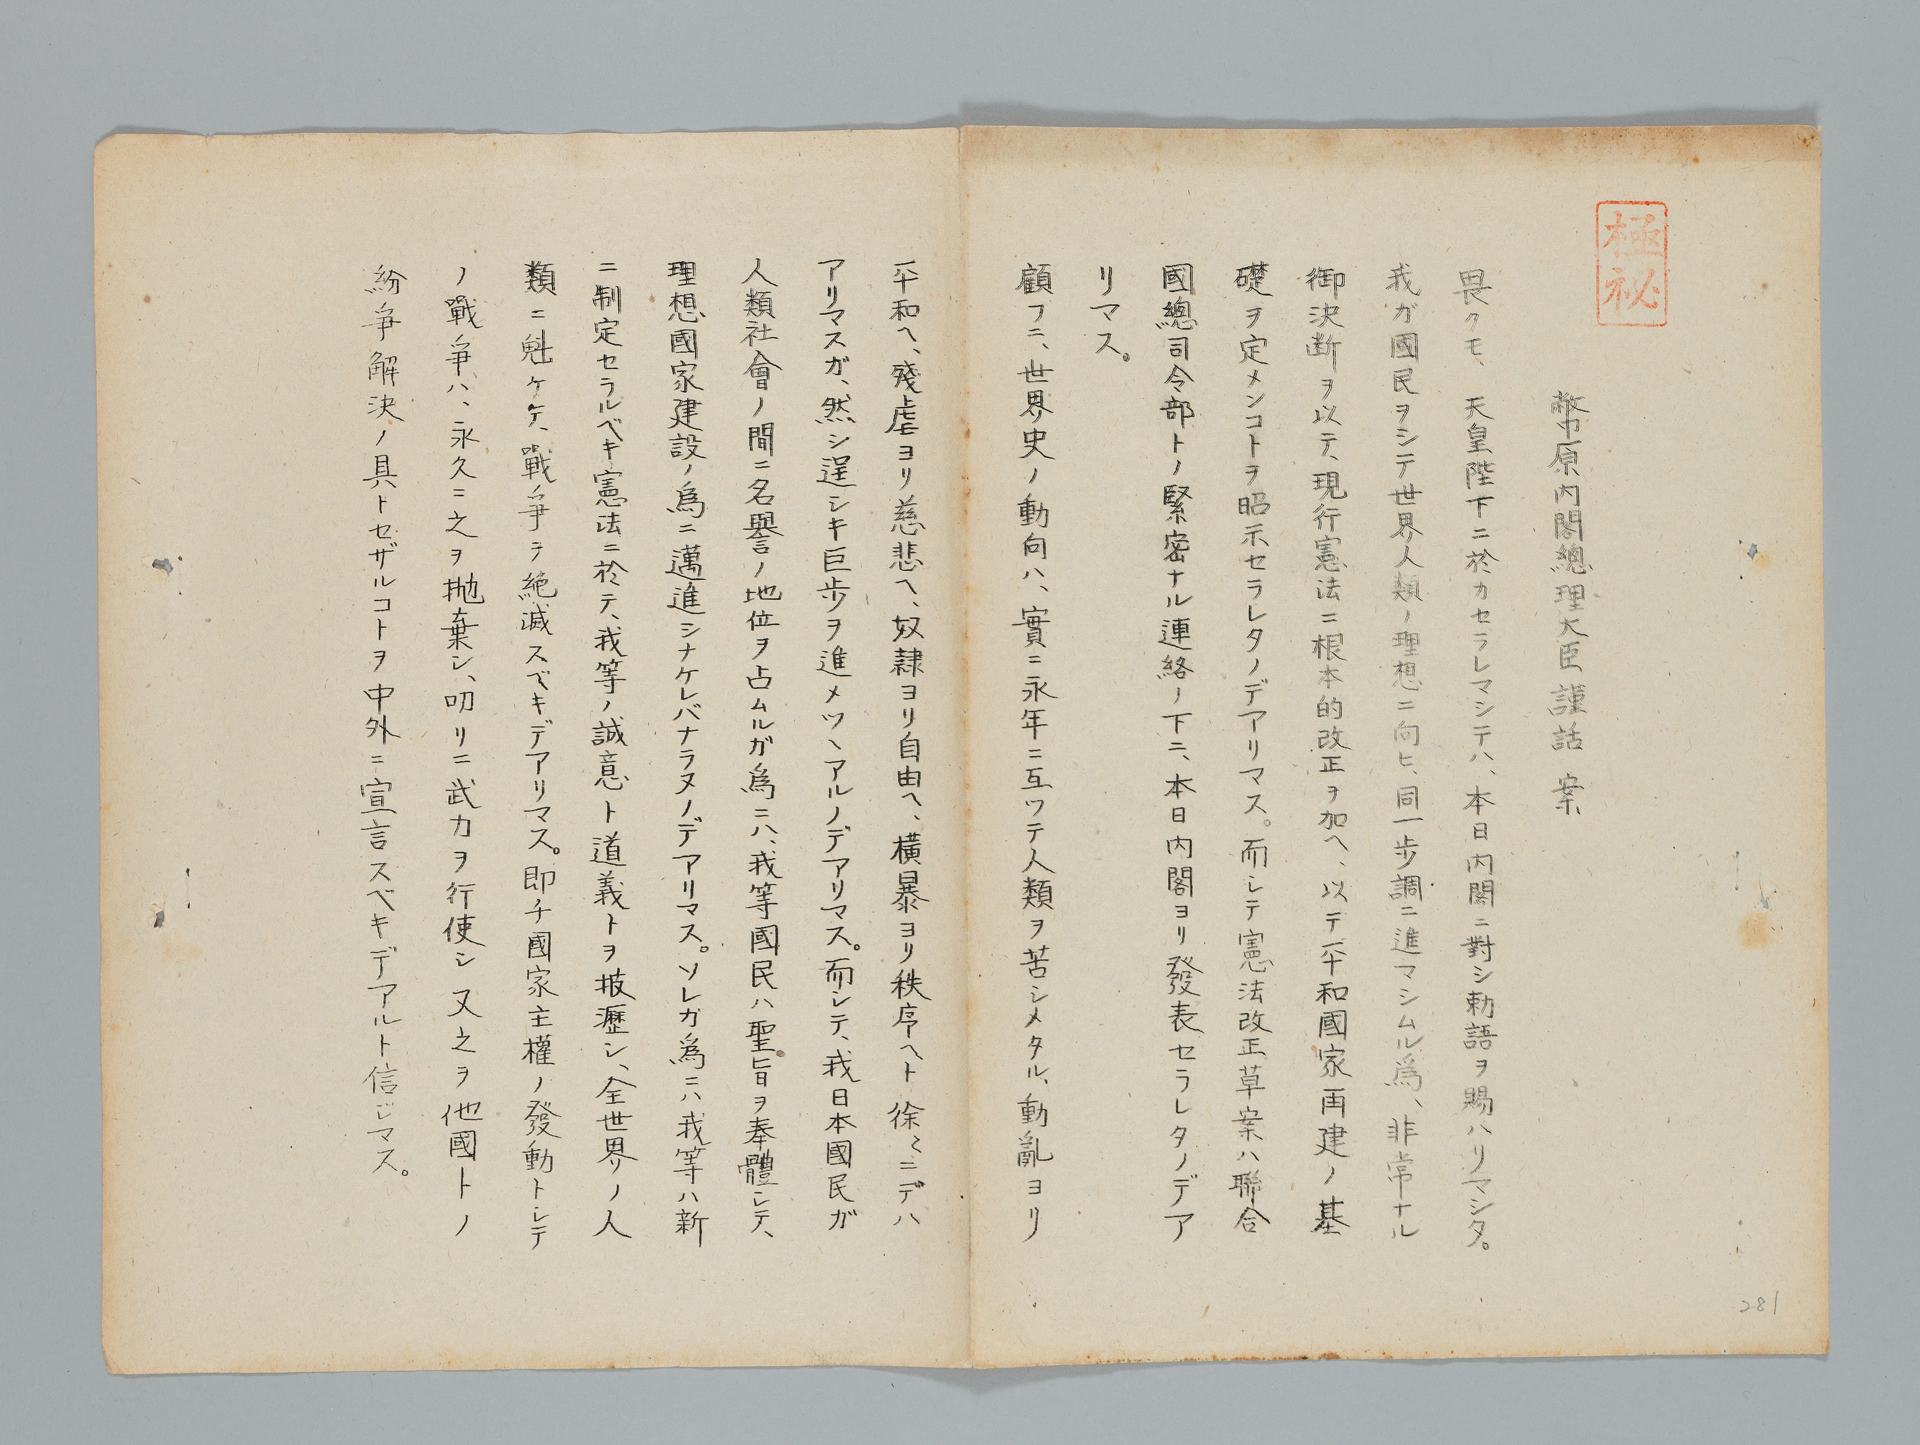 極秘
幣原内閣總理大臣謹話 案
畏クモ、天皇陛下ニ於カセラレマシテハ、本日内閣ニ對シ勅語ヲ賜ハリマシタ。
我ガ國民ヲシテ世界人類ノ理想ニ向ヒ、同一歩調ニ進マシムル爲、非常ナル
御決断ヲ以テ、現行憲法ニ根本的改正ヲ加ヘ、以テ平和國家再建ノ基
礎ヲ定メンコトヲ昭示セラレタノデアリマス。而シテ憲法改正草案ハ聯合
國總司令部トノ緊密ナル連絡ノ下ニ、本日内閣ヨリ發表セラレタノデア
リマス。
顧フニ、世界史ノ動向ハ、實ニ永年ニ亙ツテ人類ヲ苦シメタル、動亂ヨリ
平和ヘ、殘虐ヨリ慈悲ヘ、奴隷ヨリ自由ヘ、横暴ヨリ秩序ヘト徐々ニデハ
アリマスガ、然シ逞シキ巨歩ヲ進メツヽアルノデアリマス。而シテ、我日本國民ガ
人類社會ノ間ニ名譽ノ地位ヲ占ムルガ爲ニハ、我等國民ハ聖旨ヲ奉體シテ、
理想國家建設ノ爲ニ邁進シナケレバナラヌノデアリマス。ソレガ爲ニハ我等ハ新
ニ制定セラルベキ憲法ニ於テ、我等ノ誠意ト道義トヲ披瀝シ、全世界ノ人
類ニ魁ケテ、戰争ヲ絶滅スベキデアリマス。即チ國家主權ノ發動トシテ
ノ戰争ハ、永久ニ之ヲ抛棄シ、叨リニ武力ヲ行使シ又之ヲ他國トノ
紛争解決ノ具トセザルコトヲ中外ニ宣言スベキデアルト信ジマス。
281